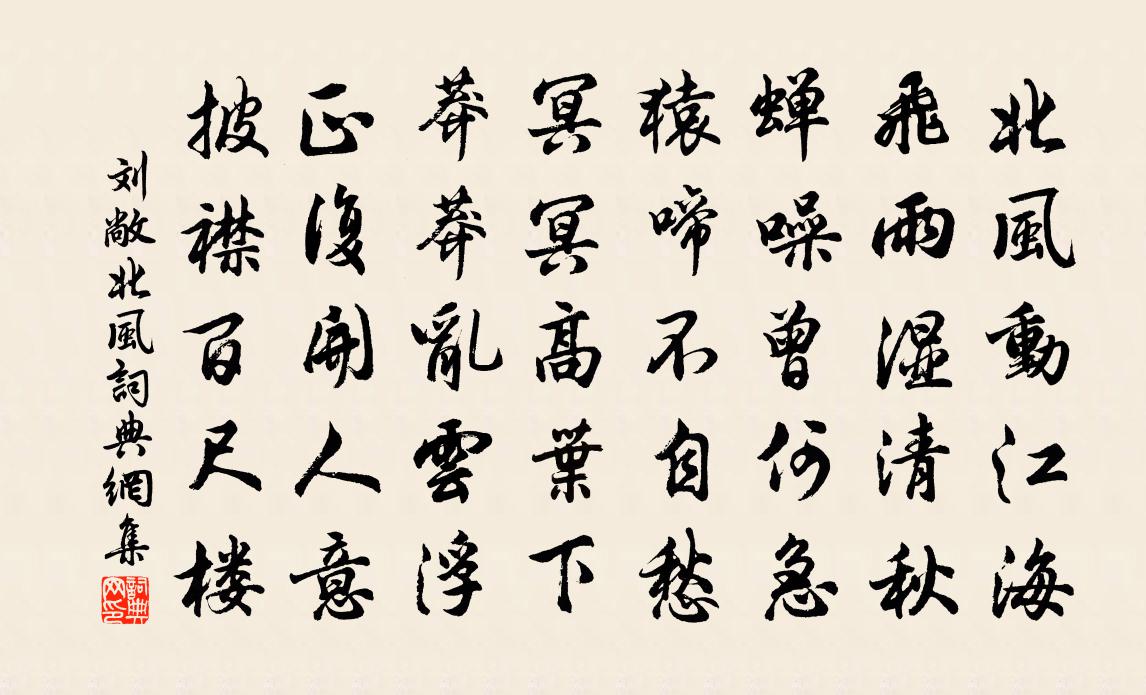 北風動江海
飛雨濕清秋
蝉噪曾何急
猿啼不自愁
冥冥高葉下
莽莽亂雲浮
正復開人意
披襟百尺楼
刘敞北風詞典網集
詞典網印